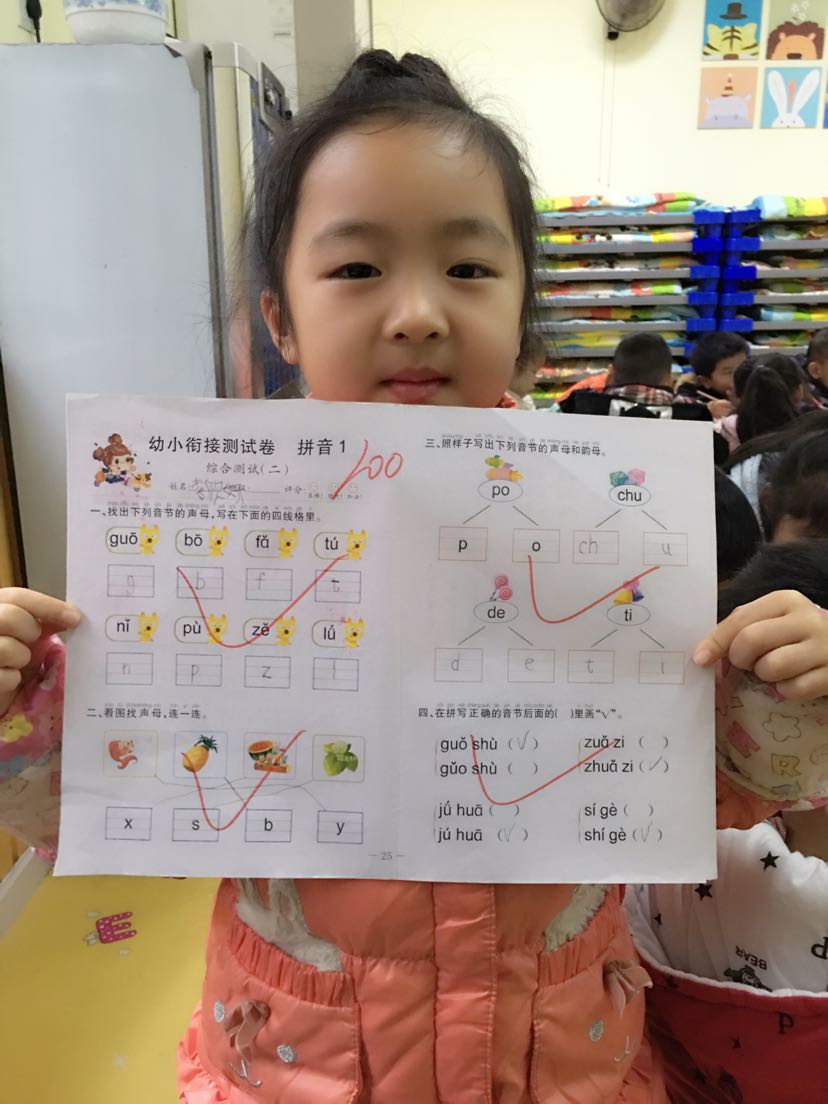 幼小衔接测试卷 拼音1
综合测试(二)
姓名: 评分:
100
一、找出下列音节的声母,写在下面的四线格里。
guō bō fǎ tú
g b f t
nǐ pù zě lú
n p z l
二、看图找声母,连一连。
x s b y
三、照样子写出下列音节的声母和韵母。
po chu
p o ch u
de ti
d e t i
四、在拼写正确的音节后面的( )里画“√”。
guǒ shù (√) zuǎ zi ( )
gǔo shù ( ) zhuǎ zi (√)
jú huā ( ) sí gè ( )
jú huā (√) shí gè (√)
— 25 —
E
BEAR